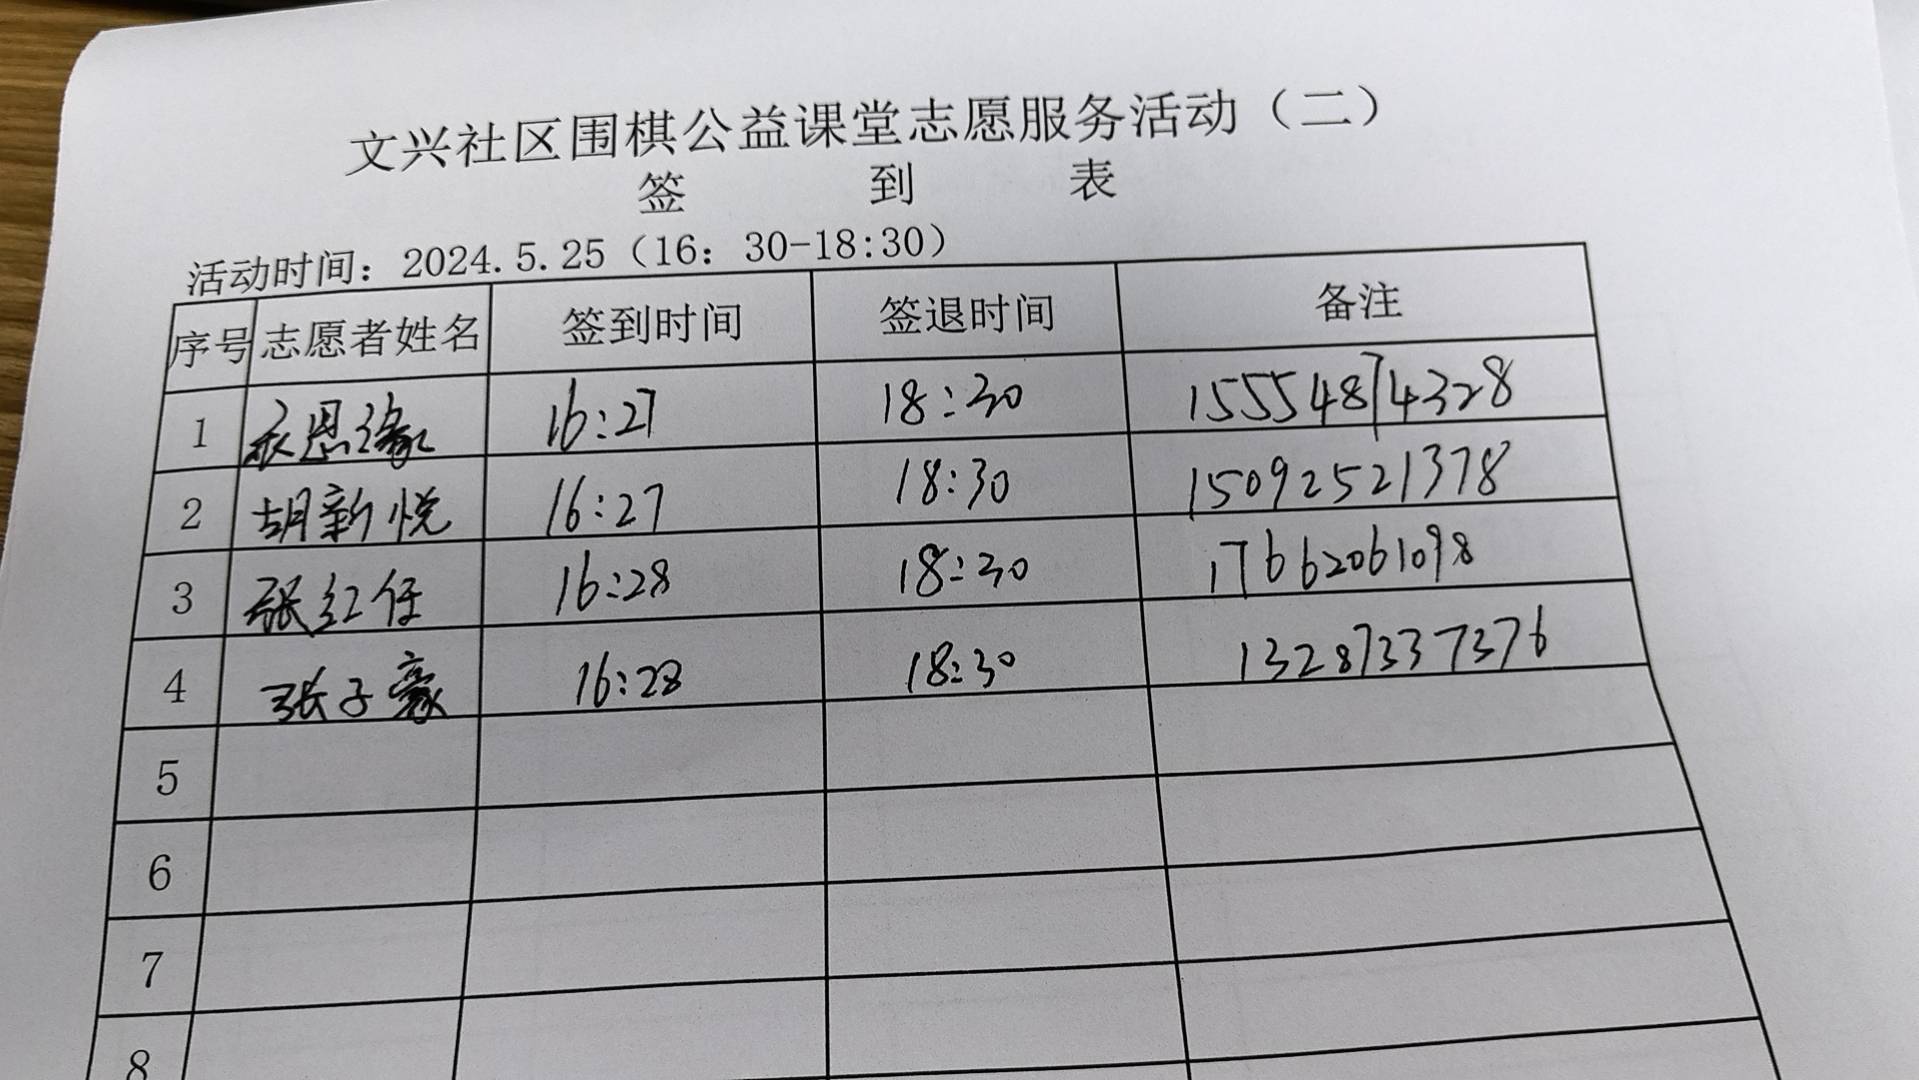 文兴社区围棋公益课堂志愿服务活动（二）
签 到 表
活动时间：2024.5.25（16：30-18:30）
序号 志愿者姓名 签到时间 签退时间 备注
1 衣恩缘 16:27 18:30 15554874328
2 胡新悦 16:27 18:30 15092521378
3 张红任 16:28 18:30 17662061098
4 张子豪 16:28 18:30 13287337376
5
6
7
8